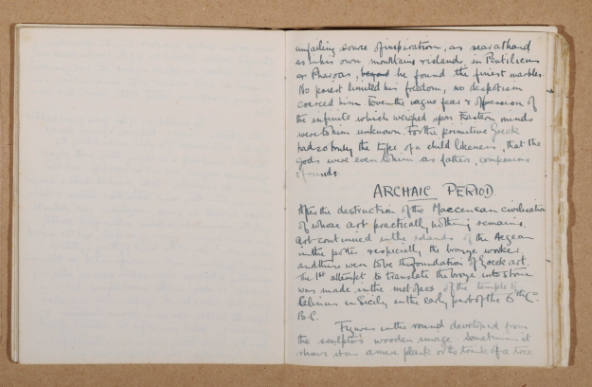 unfailing source of inspiration, as near at hand
as in his own mountains & islands, in Pentilicus
or Pharos, he found the finest marbles.
No priest limited his freedom, no despotism
coerced him. Even the vague fears & oppression of
the infinite which weighed upon Eastern minds
were to him unknown. For the primitive Greek
had so truly the type of a child likeness, that the
gods were even to him as fathers, companions
friends.
ARCHAIC PERIOD
After the destruction of the Maecenean civilisation
of whose art practically nothing remains,
art continued in the islands of the Aegean
in the potter & especially the bronze worker
and these were to be the foundation of Greek art.
The 1st attempt to translate the bronze into stone
was made in the metopes of the temple of
Selinus in Sicily in the early part of the 6th C.
B.C.
Figures in the round developed from
the sculptor's wooden image. Sometimes it
shows it as a mere plank or the trunk of a tree